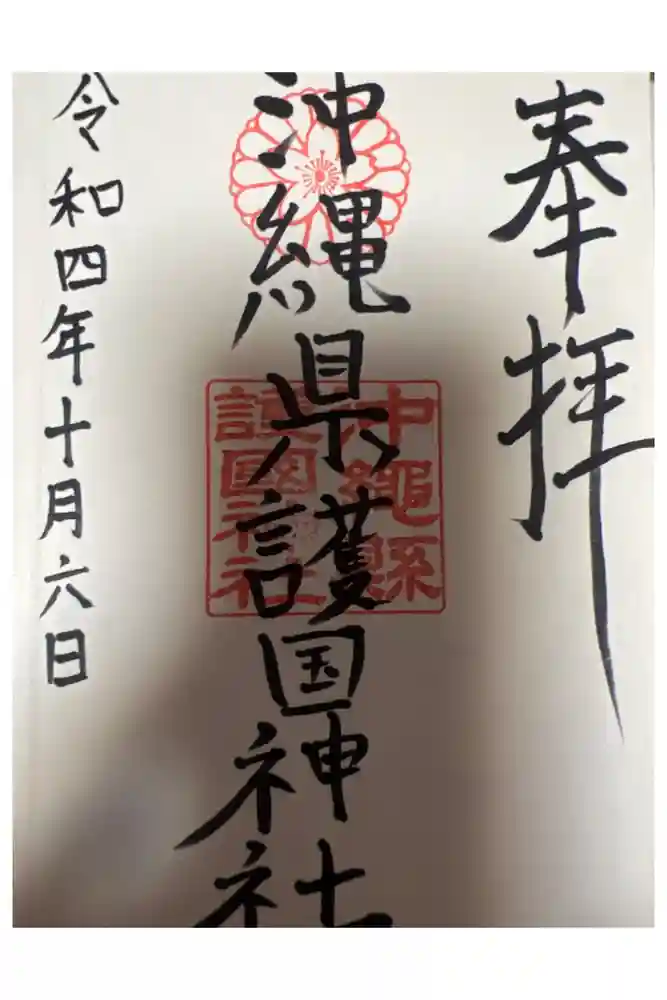 奉拝
沖縄県護国神社
沖繩縣
護國神社
令和四年十月六日